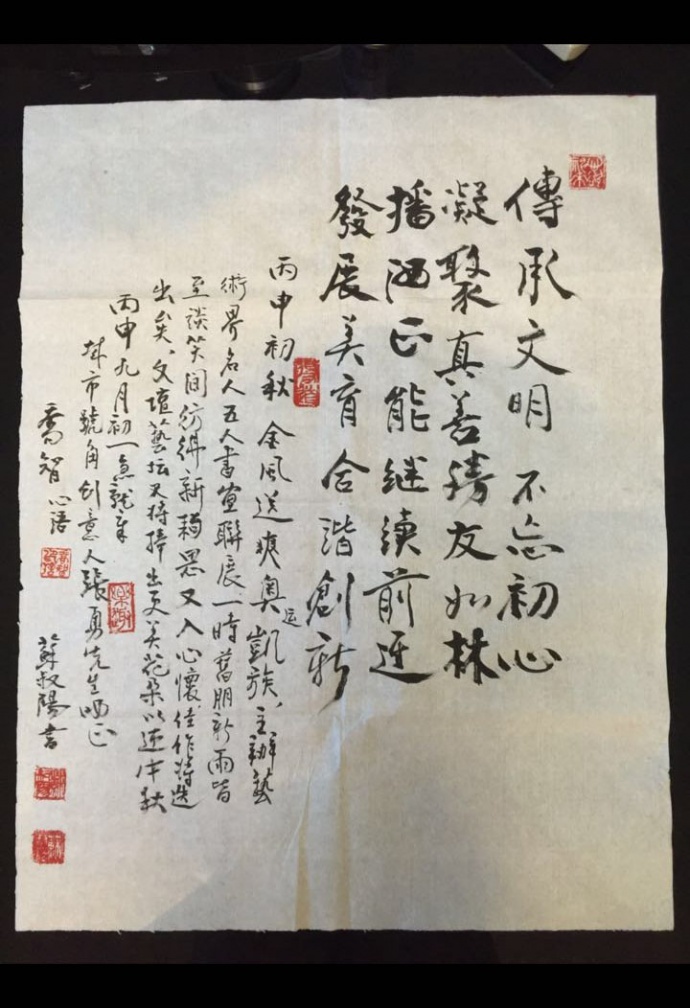 傳承文明 不忘初心
凝聚真善 磅友如林
播洒正能 继续前进
發展美育 合谐創新
丙申初秋 金風送爽奥运凱旋、主辦藝
術界名人五人書畫聯展一時舊朋新雨皆
至談笑间仿彿新 思又入心懷佳作将迭
出矣、文壇藝坛又将捧出更美花朵以迎中秋
丙申九月初一
城市號角创意人張勇先生哂正
喬智心语
蘇叔陽書